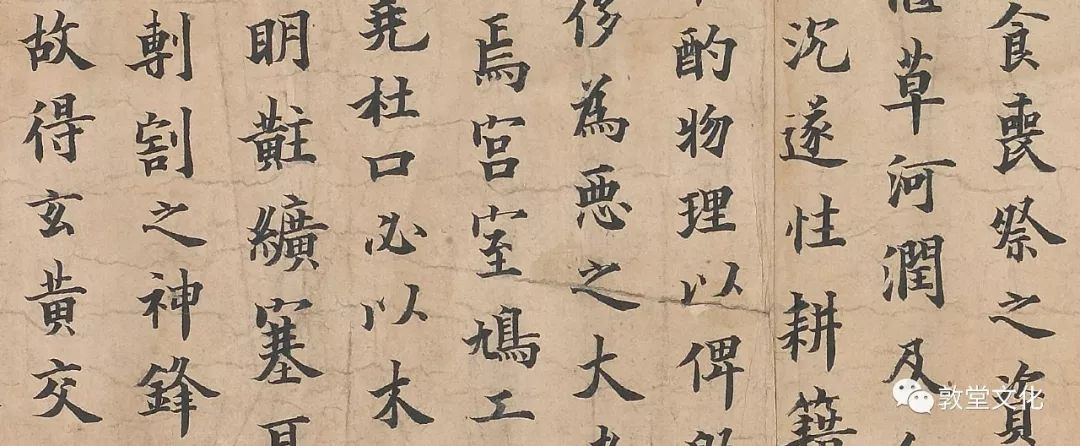 食喪祭之資
草河潤及
沉遂性耕籍
酌物理以俾
侈為惡之大
焉宮室鳩工
堯杜口必以木
明黈纊塞耳
剸割之神鋒
故得玄黃交
敦堂文化